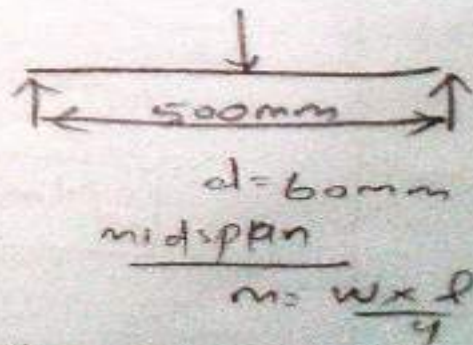 500mm
d=60mm
midspan
m= w x l
4